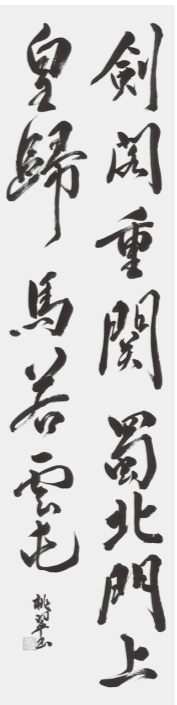 劍閣重關蜀北門上
皇歸馬若雲屯